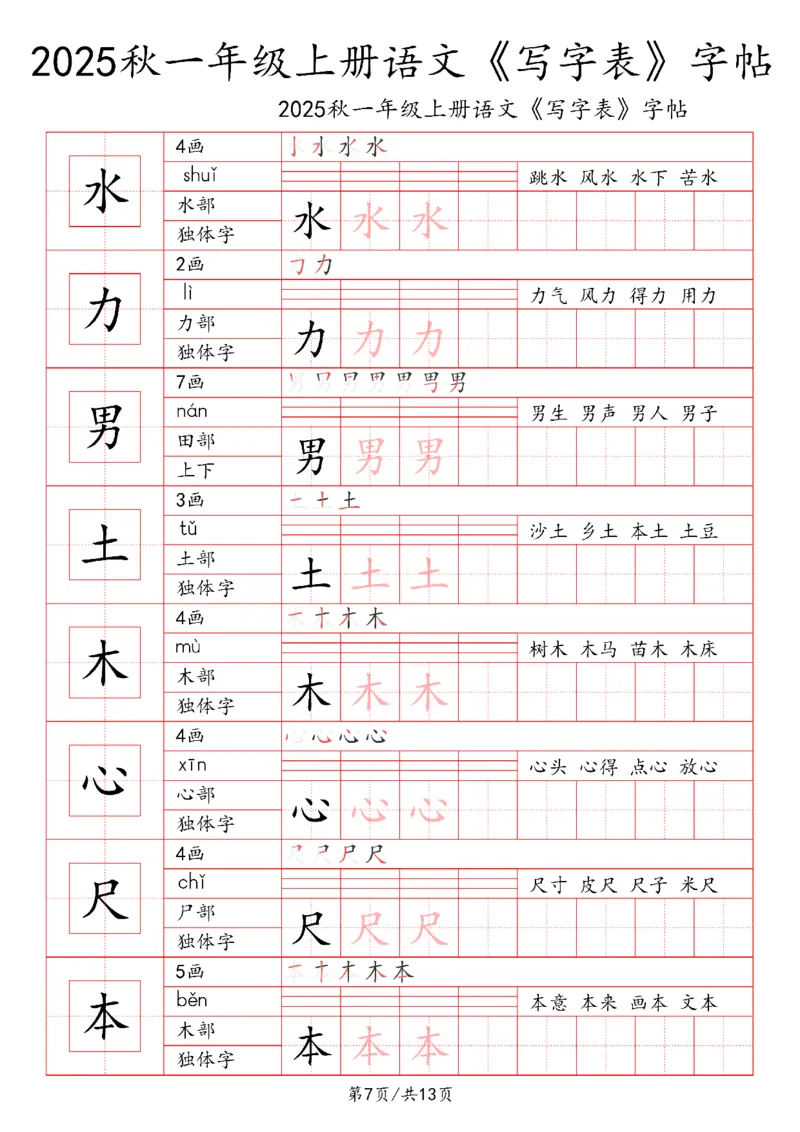 2025秋一年级上册语文《写字表》字帖
2025秋一年级上册语文《写字表》字帖
水
4画
丨 水 水 水
shuǐ
跳水 风水 水下 苦水
水部
独体字
水 水 水
力
2画
㇆ 力
lì
力气 风力 得力 用力
力部
独体字
力 力 力
男
7画
男
nán
男生 男声 男人 男子
田部
上下
男 男 男
土
3画
一 十 土
tǔ
沙土 乡土 本土 土豆
土部
独体字
土 土 土
木
4画
一 十 才 木
mù
树木 木马 苗木 木床
木部
独体字
木 木 木
心
4画
心 心 心 心
xīn
心头 心得 点心 放心
心部
独体字
心 心 心
尺
4画
尺
chǐ
尺寸 皮尺 尺子 米尺
尸部
独体字
尺 尺 尺
本
5画
一 十 才 木 本
běn
本意 本来 画本 文本
木部
独体字
本 本 本
第7页/共13页